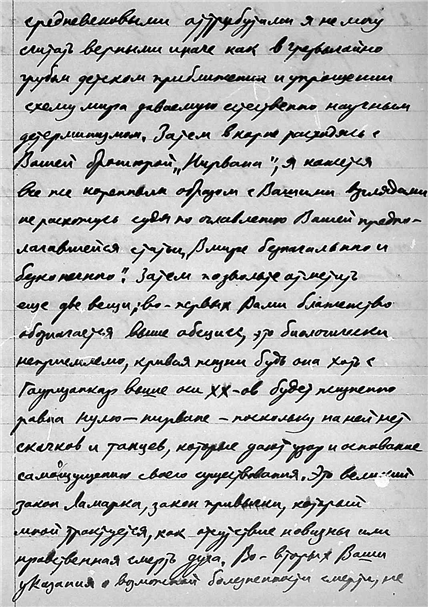 средневековыми аттрибутами я не могу
считать верными иначе как в чрезвычайно
грубом детском приближении и упрощении
схему мира даваемую естественно научным
детерминизмом. Затем в корне расходясь с
Вашей брошюрой „Нирвана", я кажется
все же коренным образом с Вашими взглядами
не раскожусь судя по оглавлению Вашей предпо-
лагавшейся статьи, В мире безначального и
бесконечного". Затем позвольте отметить
еще две вещи; во-первых Вами блаженство
обозначается выше абсцисс, это биологически
неприемлемо, кривая жизни будь она хоть с
Гауризанкар выше оси XX-ов будет жизненно
равна нулю-нирване - поскольку на ней нет
скачков и танцев, которые дают узор и основание
самоощущению своего существования. Это великий
закон Ламарка, закон привычки, который
мной трактуется, как отсутствие новизны или
нравственная смерть духа, Во-вторых Ваши
указания о возможной болезненности смерти, не